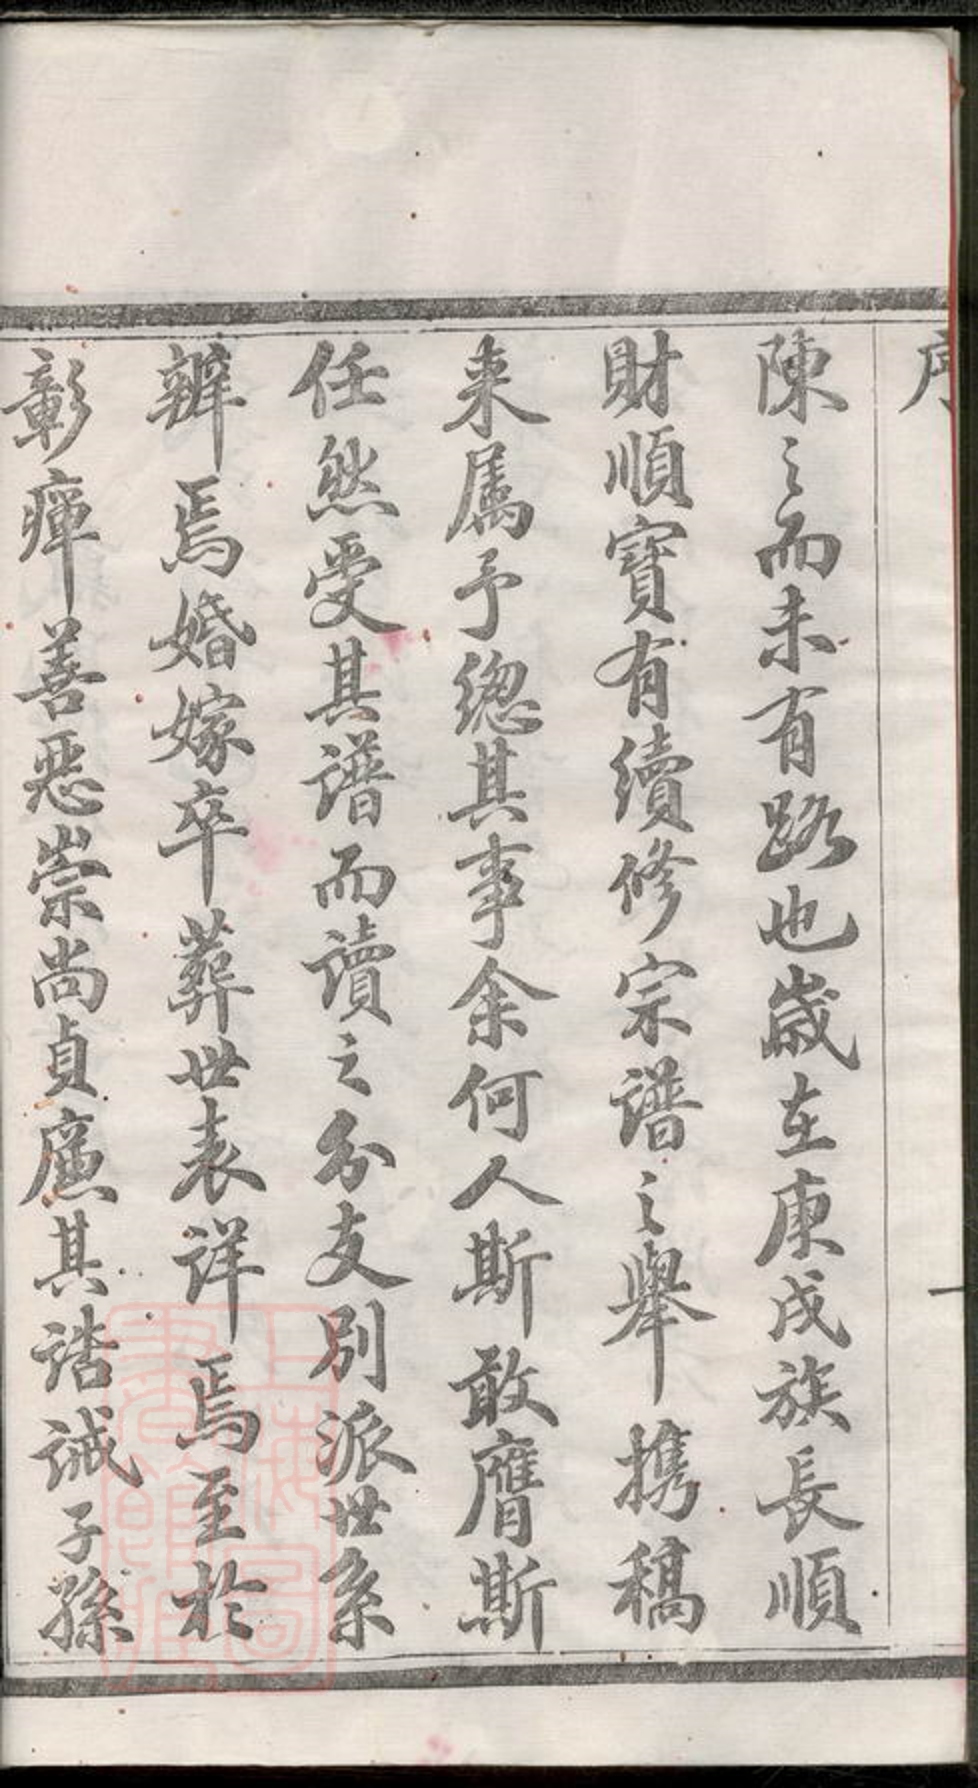 序
一
陳之而未有路也歲在庚戌族長順
財順寶有續修宗譜之舉携稿
来属予總其事余何人斯敢膺斯
任然受其譜而讀之分支別派世系
辨焉婚嫁卒葬世表詳焉至於
彰癉善惡崇尚貞廉其誥誡子孫
上海圖書館藏